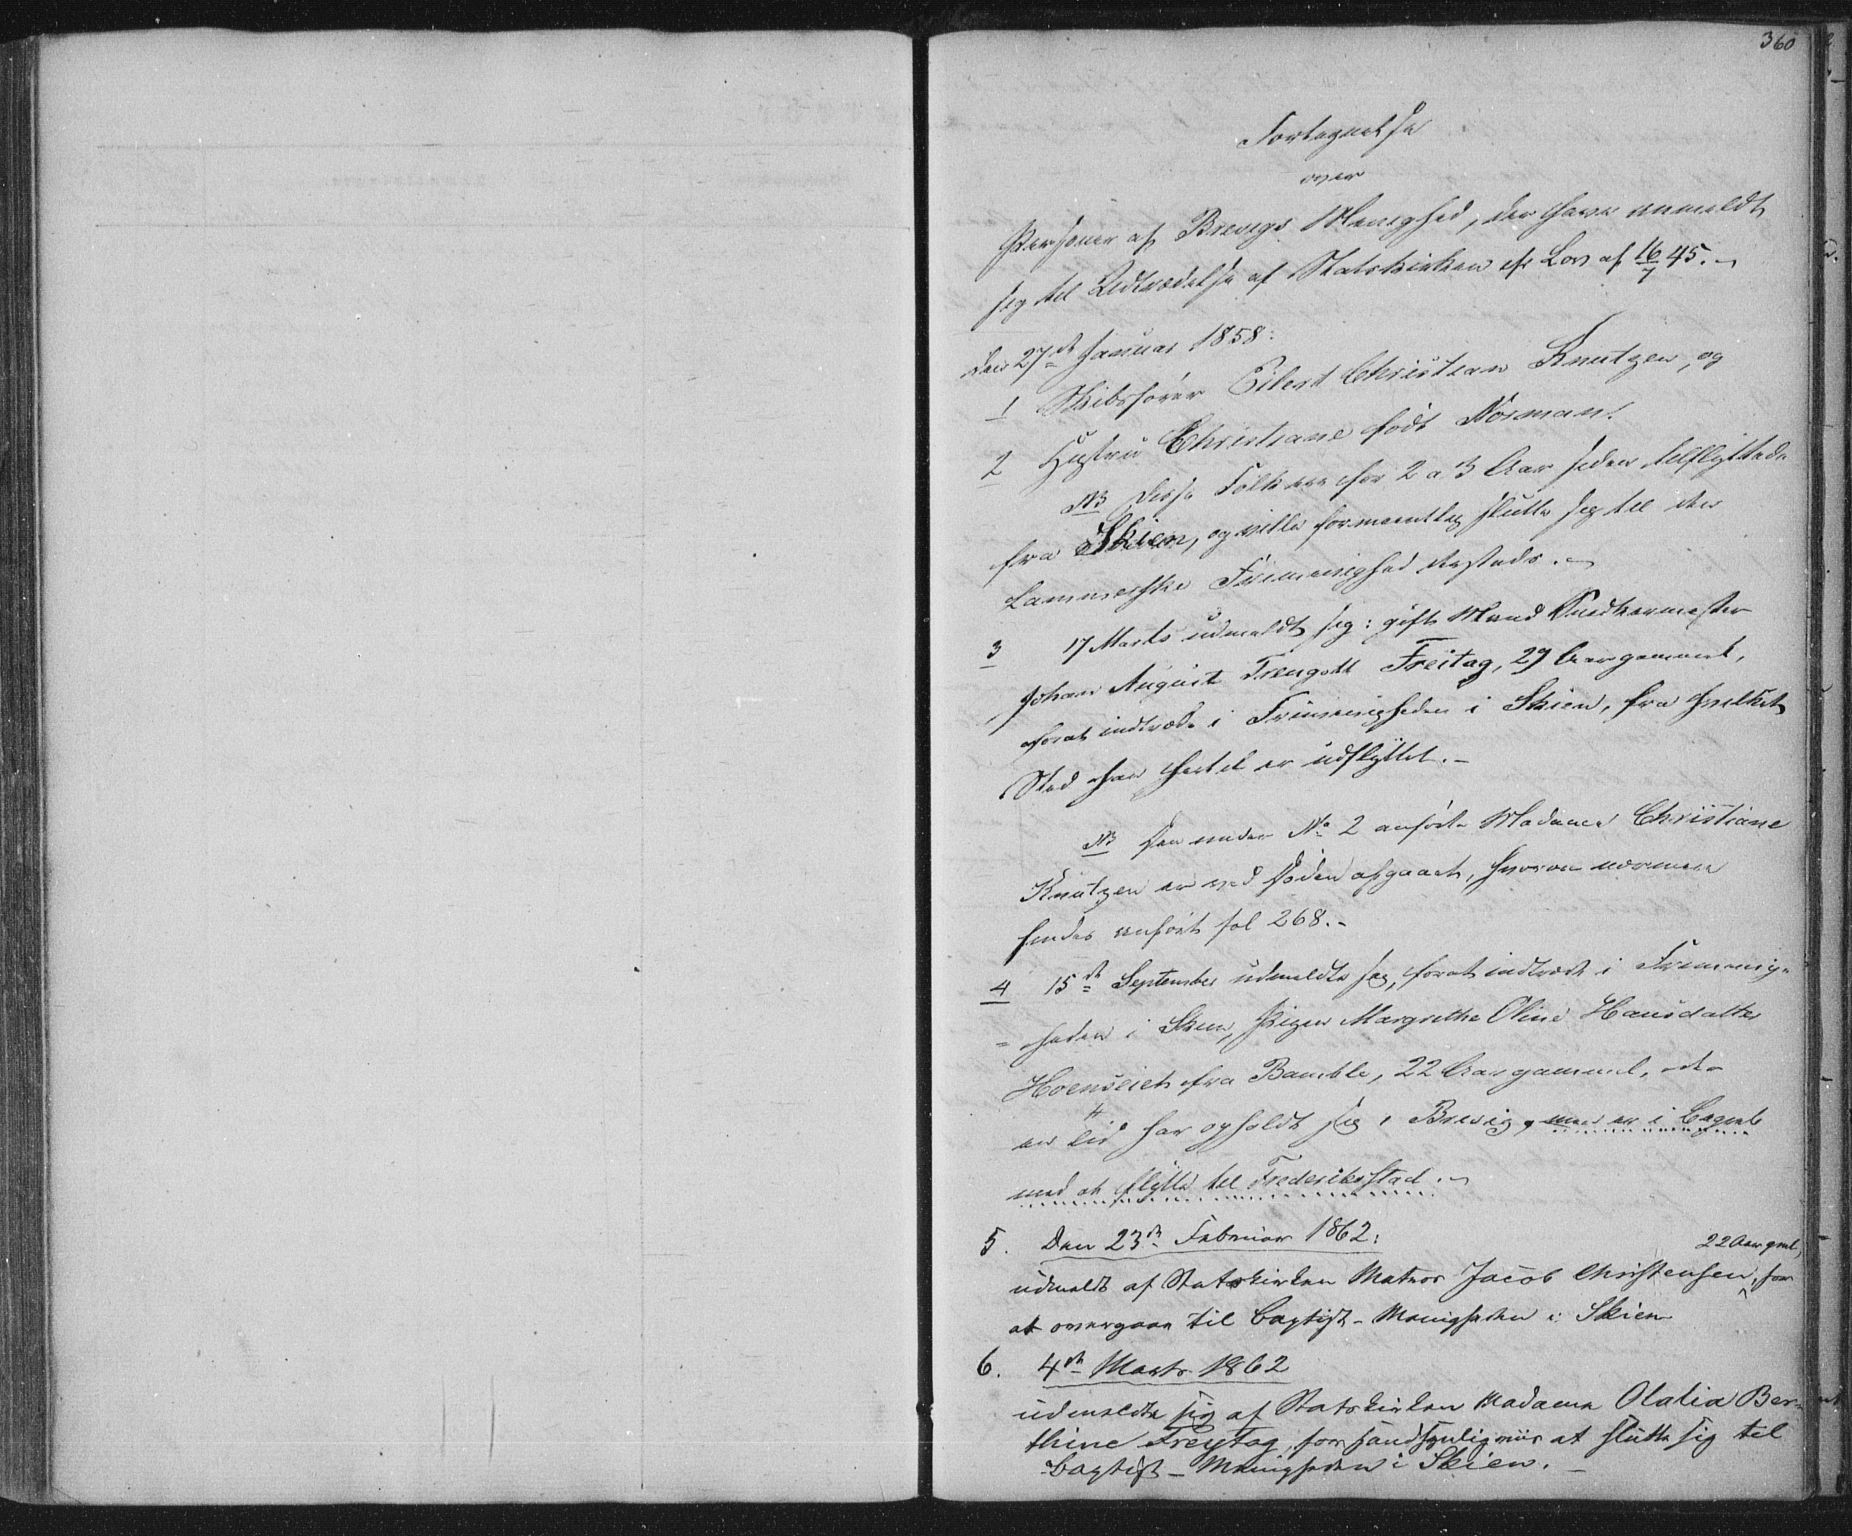 360
Fortegnelse
over
Personer af Brevigs Menighed, der have anmeldt
sig til Udtrædelse af Statskirken efr Lov af 16/7 45.
Den 27de Januar 1858:
1 Skibsfører Eilert Christian Knutzen, og
2 Hustru Christiane født Norman.
NB Disse Folk ere for 2 a 3 Aar siden tilflyttede
fra Skien, og ville formeentlig slutte sig til den
Lammerske Frimenighed sammesteds.
3 17 Marts udmeldt sig: gift Mand Snedkermester
Johan August Treugott Freitag, 29 Aar gammel,
forat indtræde i Frimenigheden i Skien, fra hvilket
Sted han hertil er udflyttet.
NB Den under No 2 anførte Madame Christiane
Knutzen er ved Døden afgaaet, hvorom nærmere
findes anført fol 268.
4 15de September udmeldte sig, forat indtræde i Frimenig-
heden i Skien, Pigen Margrethe Oline Hansdatter
Hoenseiet fra Bamble, 22 Aar gammel, der
en Tid har opholdt sig i Brevig, men er i Begreb
med at flytte til Frederiksstad.
5. Den 23de Februar 1862: 22 Aar gml,
udmeldt af Statskirken Matros Jacob Christensen, for
at overgaae til Baptist-Menigheden i Skien
6. 4de Marts 1862
udmeldte sig af Statskirken Madame Olalia Ber-
thine Freytag, for sandsynligviis at slutte sig til
Baptist-Menigheden i Skien.